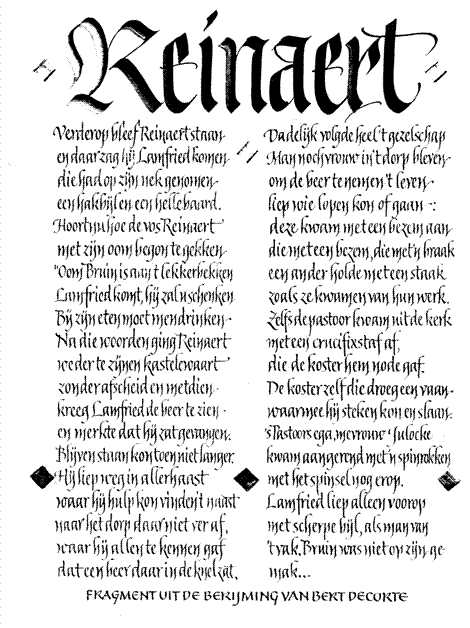 Reinaert
Verderop bleef Reinaert staan
en daar zag hij Lamfried komen
die had op zijn nek genomen
een hakbijl en een hellebaard.
Hoort nu hoe de vos Reinaert
met zijn oom begon te gekken
"Oom Bruin is aan 't lekkerbekken
Lamfried komt, hij zal u schenken
Bij zijn eten moet men drinken.
Na die woorden ging Reinaert
weder te zijnen kastelwaart
zonder afscheid en metdien
kreeg Lamfried de beer te zien
en merkte dat hij zat gevangen.
Blijven staan kon toen niet langer.
Hij liep weg in allerhaast
waar hij hulp kon vinden 't naast
naar het dorp daar niet ver af,
waar hij allen te kennen gaf
dat een beer daar in de knel zat.
Dadelijk volgde heel 't gezelschap
Man noch vrouw in 't dorp bleven
om de beer te nemen 't leven
liep wie lopen kon of gaan
deze kwam met een bezem aan
die met een bezem, die met 'n braak
een ander holde met een staak
zoals ze kwamen van hun werk.
Zelfs de pastoor kwam uit de kerk
met een crucifixstaf af,
die de koster hem node gaf.
De koster zelf die droeg een vaan
waarmee hij steken kon en slaan.
's Pastoors ega, mevrouw Julocke
kwam aangerend met 'n spinrokken
met het spinsel nog erop.
Lamfried liep alleen voorop
met scherpe bijl, als man van
't vak. Bruin was niet op zijn ge-
mak...
FRAGMENT UIT DE BERIJMING VAN BERT DECORTE